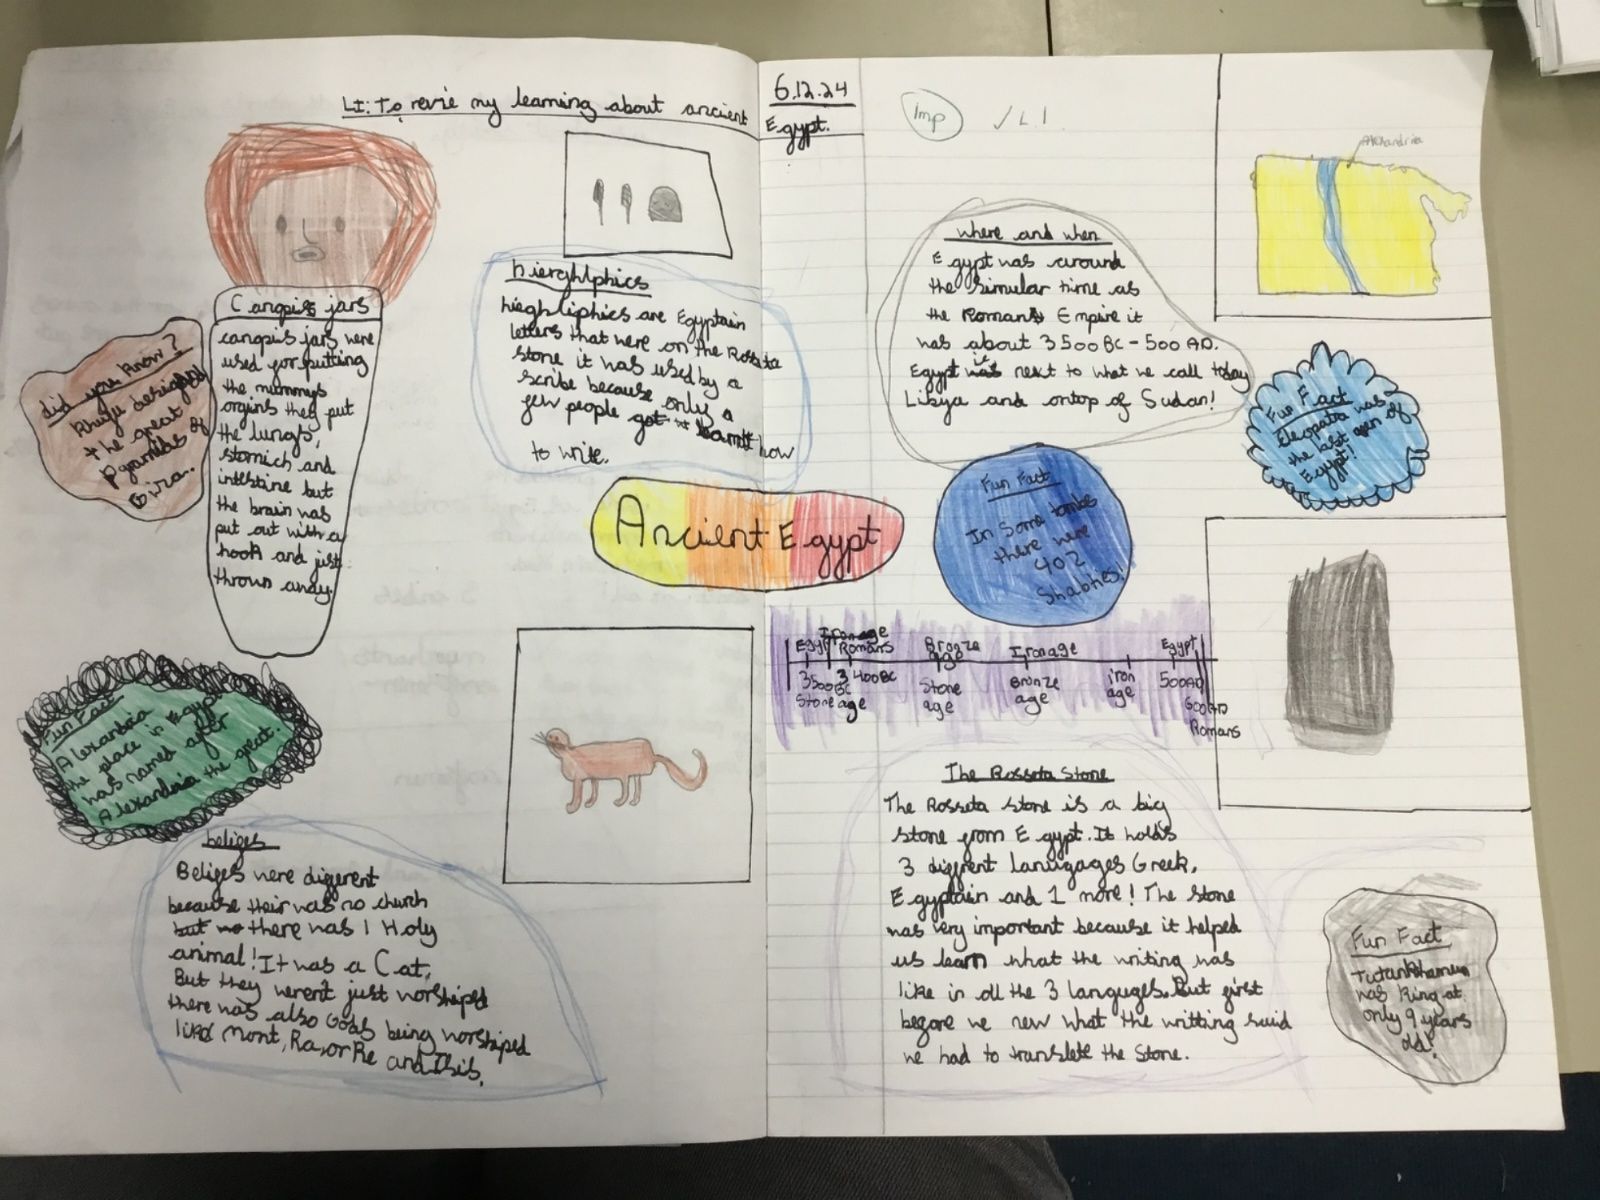 LI: To revie my learning about ancient
6.12.24
Egypt.
Imp
✓ L I
Alexandria
Canopis jars
canopis jars were
used for putting
the mummys
orgins they put
the lungs,
stomich and
intestine but
the brain was
put out with a
hook and just
thrown away.
did you know?
Khufu designed
the great
Pyramids of
Giza.
hierghlphics
hieghliphics are Egyptain
letters that were on the Rosseta
stone it was used by a
scribe because only a
few people got to learnt how
to write.
where and when
Egypt was around
the simular time as
the Romans Empire it
was about 3500 BC - 500 AD.
Egypt it was next to what we call today
Libya and ontop of Sudan!
Fun Fact
Cleopata was
the last qeen of
Egypt!
Ancient Egypt
Fun Fact
In some tombs
there were
402
Shabties!
Egypt
Iron age
Romans
Bronze
age
Iron age
Egypt
3500BC
Stone age
3400BC
Stone
age
Bronze
age
iron
age
500AD
600AD
Romans
Fun Fact
Alexandria
the place in Egypt
was named after
Alexandria the great.
beliefs
Beliefs were different
because their was no church
but no there was 1 Holy
animal! It was a Cat,
But they weren't just worshiped
there was also Gods being worshiped
like Mont, Ra, or Re and Isis.
The Rosseta Stone
The Rosseta stone is a big
stone from Egypt. It holds
3 different lanugages Greek,
Egyptain and 1 more! The stone
was very important because it helped
us learn what the writing was
like in all the 3 languges. But first
before we new what the writting said
we had to translete the stone.
Fun Fact
Tutankhamun
was king at
only 9 years
old!